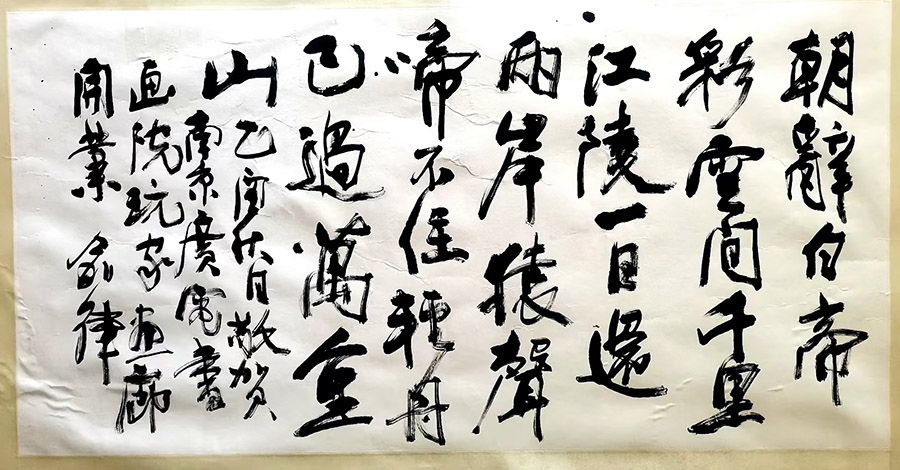 朝辭白帝
彩雲間千里
江陵一日還
兩岸猿聲
啼不住輕舟
已過萬重
山乙酉秋日敬賀
南京廣電書
画院玩家画廊
開業 家律